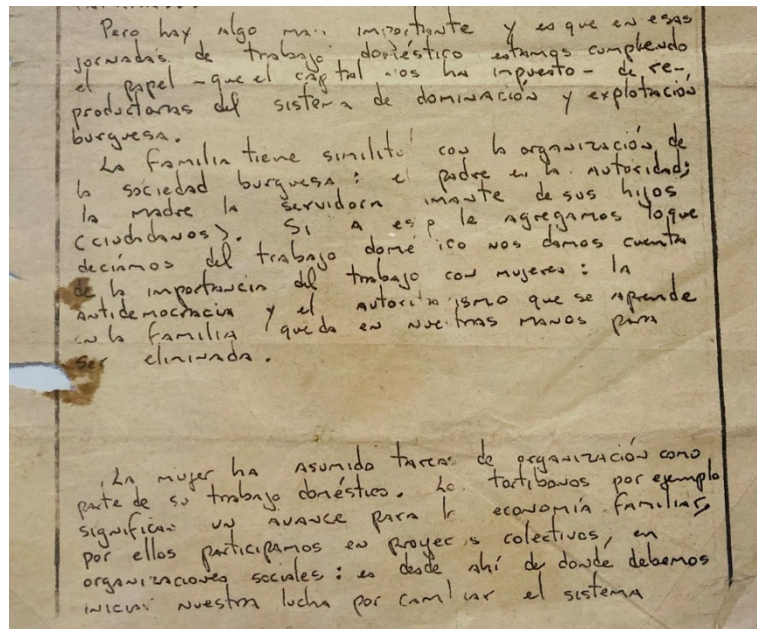 Pero hay algo mas importante y es que en esas
jornadas de trabajo doméstico estamos cumpliendo
el papel - que el capital nos ha impuesto - de re-
productoras del sistema de dominación y explotación
burguesa.
La familia tiene similitud con la organización de
la sociedad burguesa: el padre es la autoridad;
la madre la servidora amante de sus hijos
(ciudadanos). Si a eso le agregamos loque
deciámos del trabajo doméstico nos damos cuenta
de la importancia del trabajo con mujeres: la
antidemocracia y el autoritarismo que se aprende
en la familia queda en nuestras manos para
ser eliminada.
La mujer ha asumido tareas de organización como
parte de su trabajo doméstico. Lo tortibonos por ejemplo
significan un avance para la economía familiar,
por ellos participamos en proyectos colectivos, en
organizaciones sociales: es desde ahí de donde debemos
iniciar nuestra lucha por cambiar el sistema